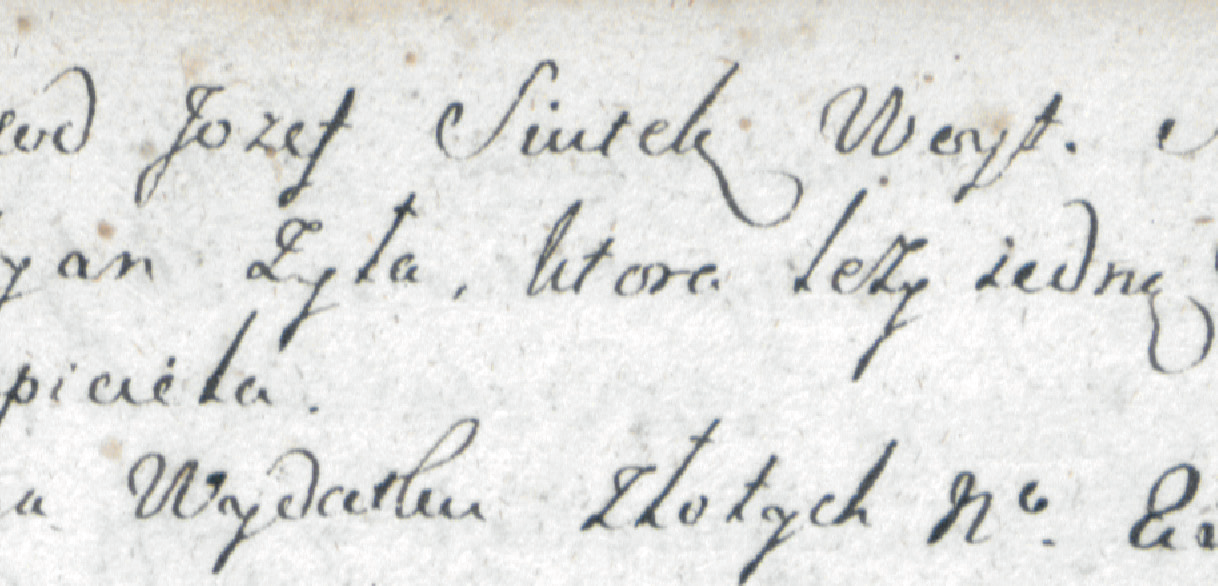 Jozef Siutek Woyt.
yan Zyła, ktora leży iedną
piciela.
a Wydatku Złotych No.